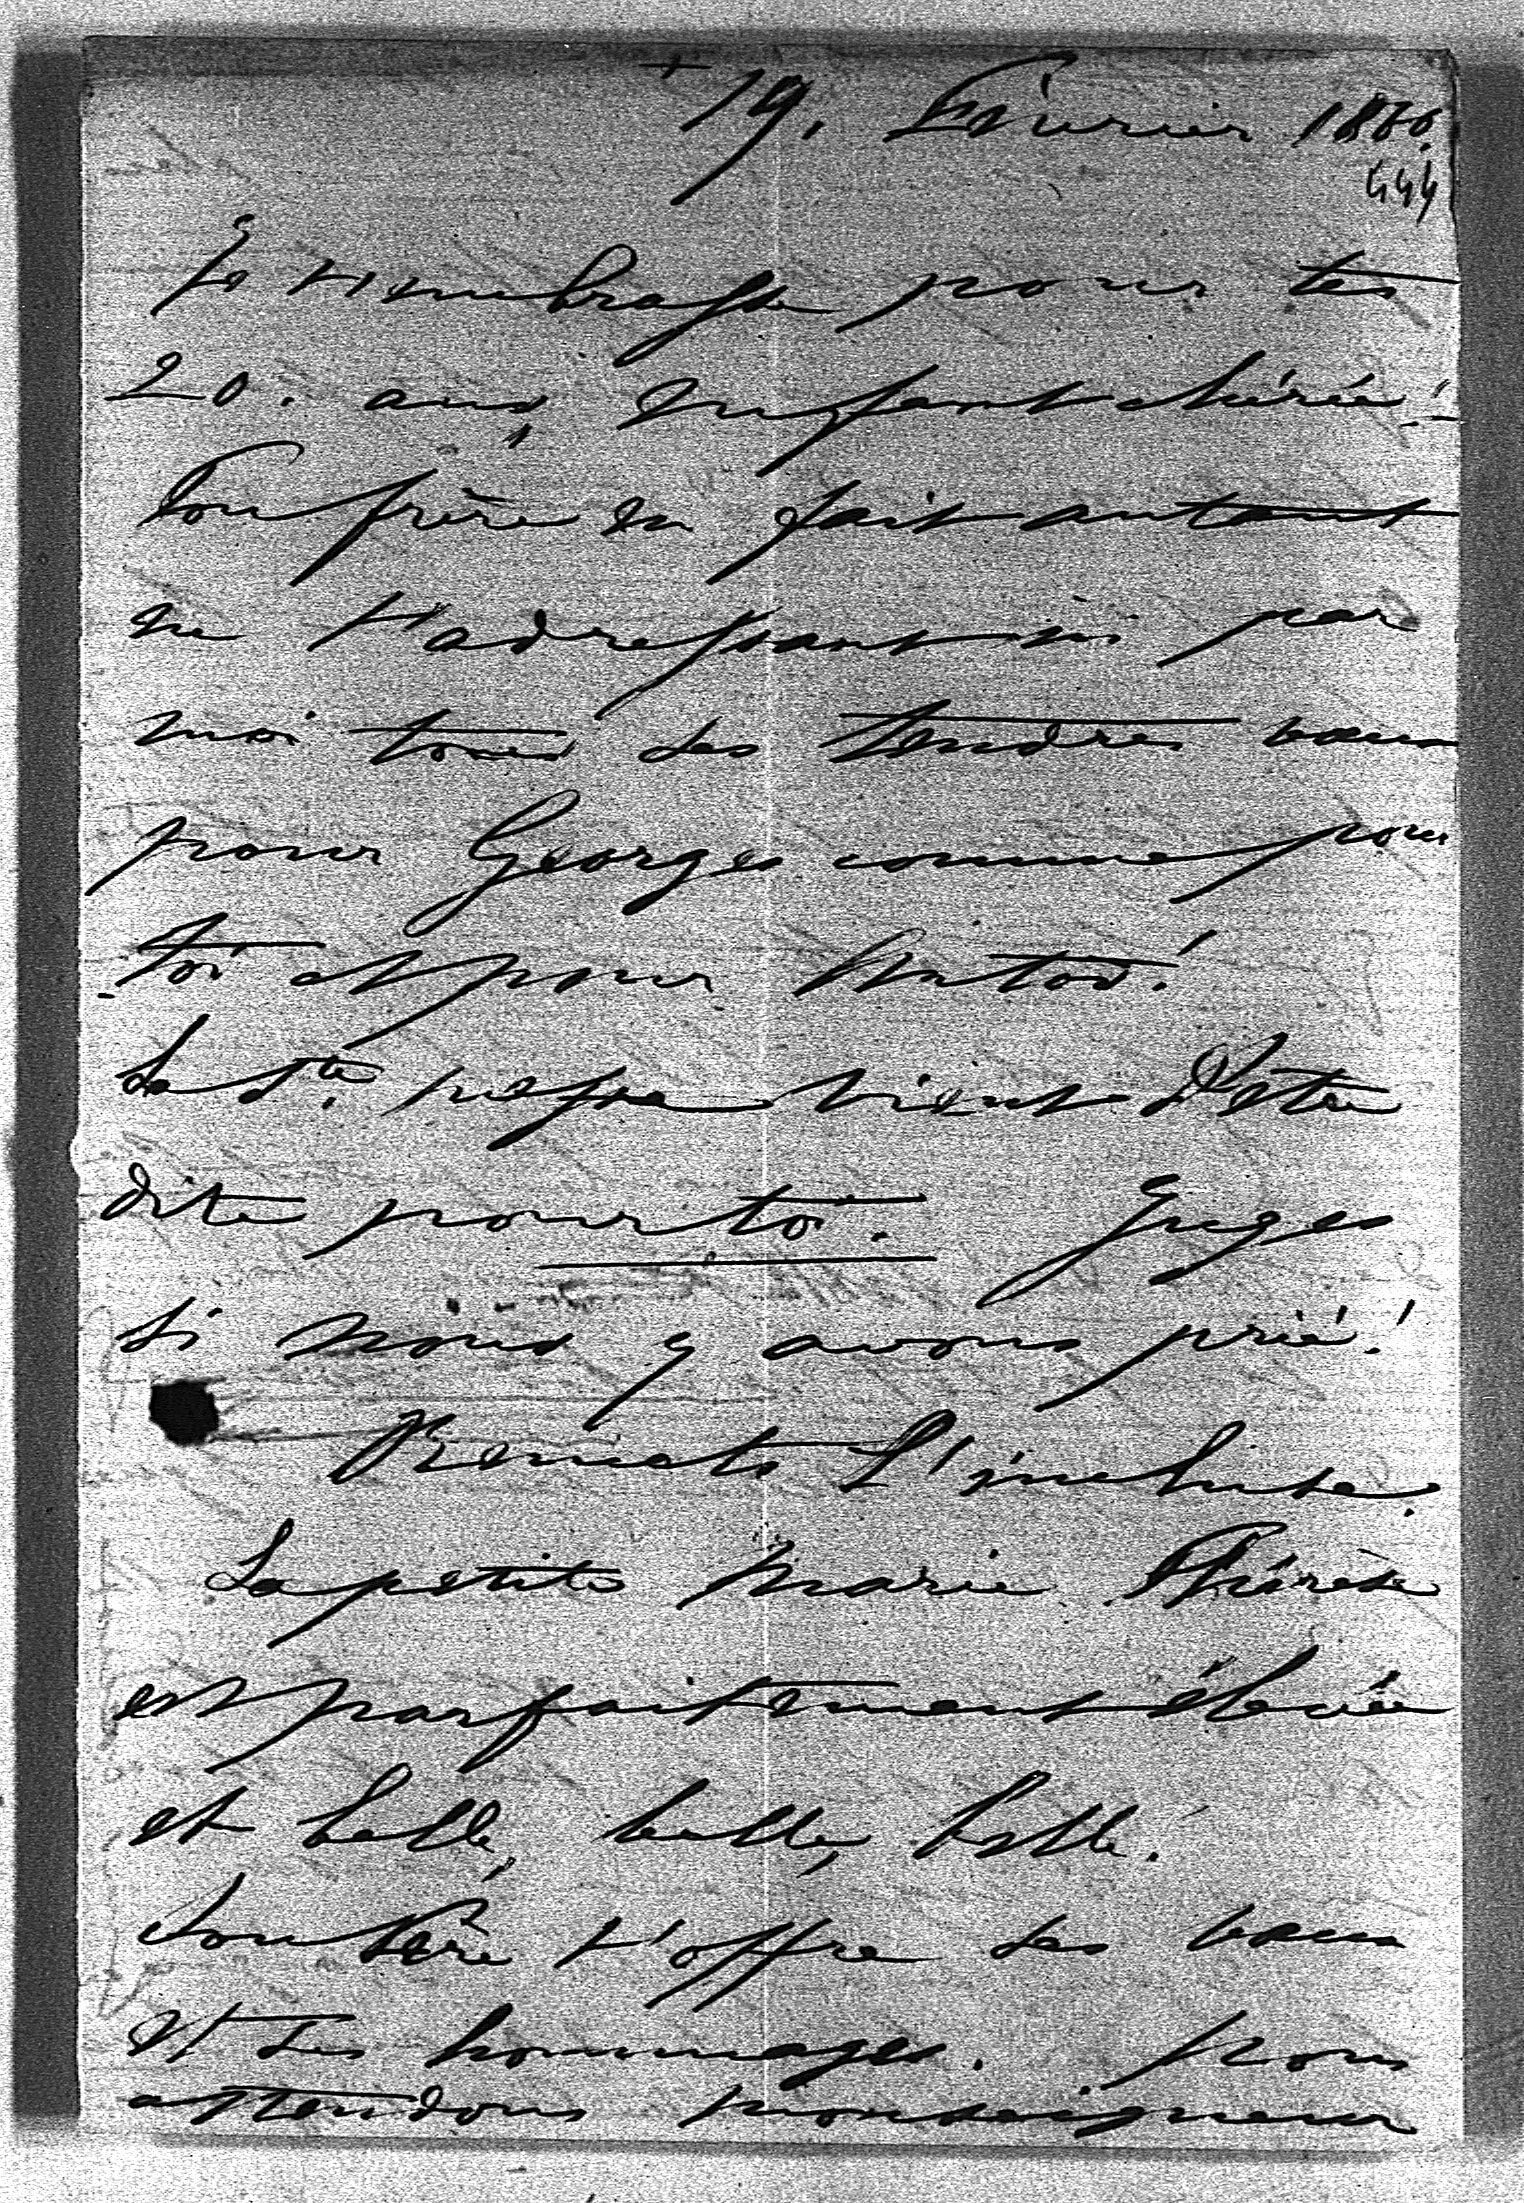 +
19. Février 1866.
444
Je t'embrasse pour tes
20. ans, Enfant chérie!
Ton frère en fait autant
en t'adressant ici par
moi tous ses tendres vœux
pour Georges comme pour
toi et pour
La Ste messe vient d'être
dite pour toi. Juges
si nous y avons prié!
Remets l'incluse.
La petite Marie Thérèse
est parfaitement élevée
et belle, belle, belle.
Ton Père t'offre ses vœux
et ses hommages. Nous
attendons Monseigneur